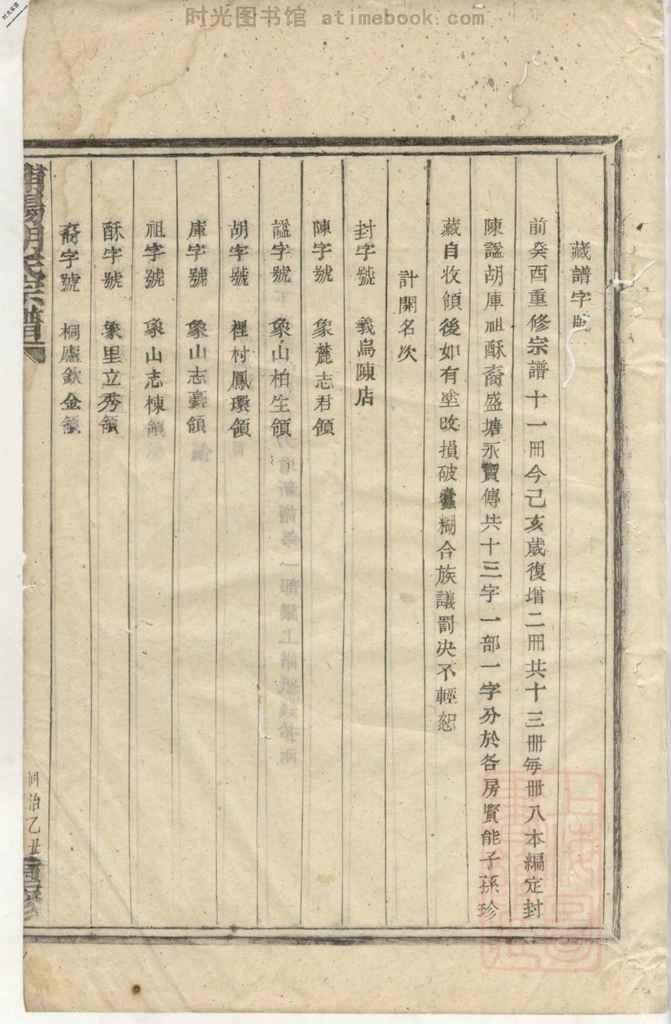 时光图书馆 atimebook.com
藏譜字號
前癸酉重修宗譜十一冊今己亥歲復增二冊共十三冊每冊八本編定封
陳謚胡庫祖酥裔盛塘永寶傳共十三字一部一字分於各房賢能子孫珍
藏自收領後如有塗改損破蠹糊合族議罰決不輕恕
計開名次
封字號 義烏陳店
陳字號 象麓志君領
謚字號 象山柏生領
胡字號 裡村鳳環領
庫字號 象山志 領
祖字號 象山志棟領
酥字號 象里立秀領
裔字號 桐廬欽金領
胡氏宗譜
同治乙丑重修